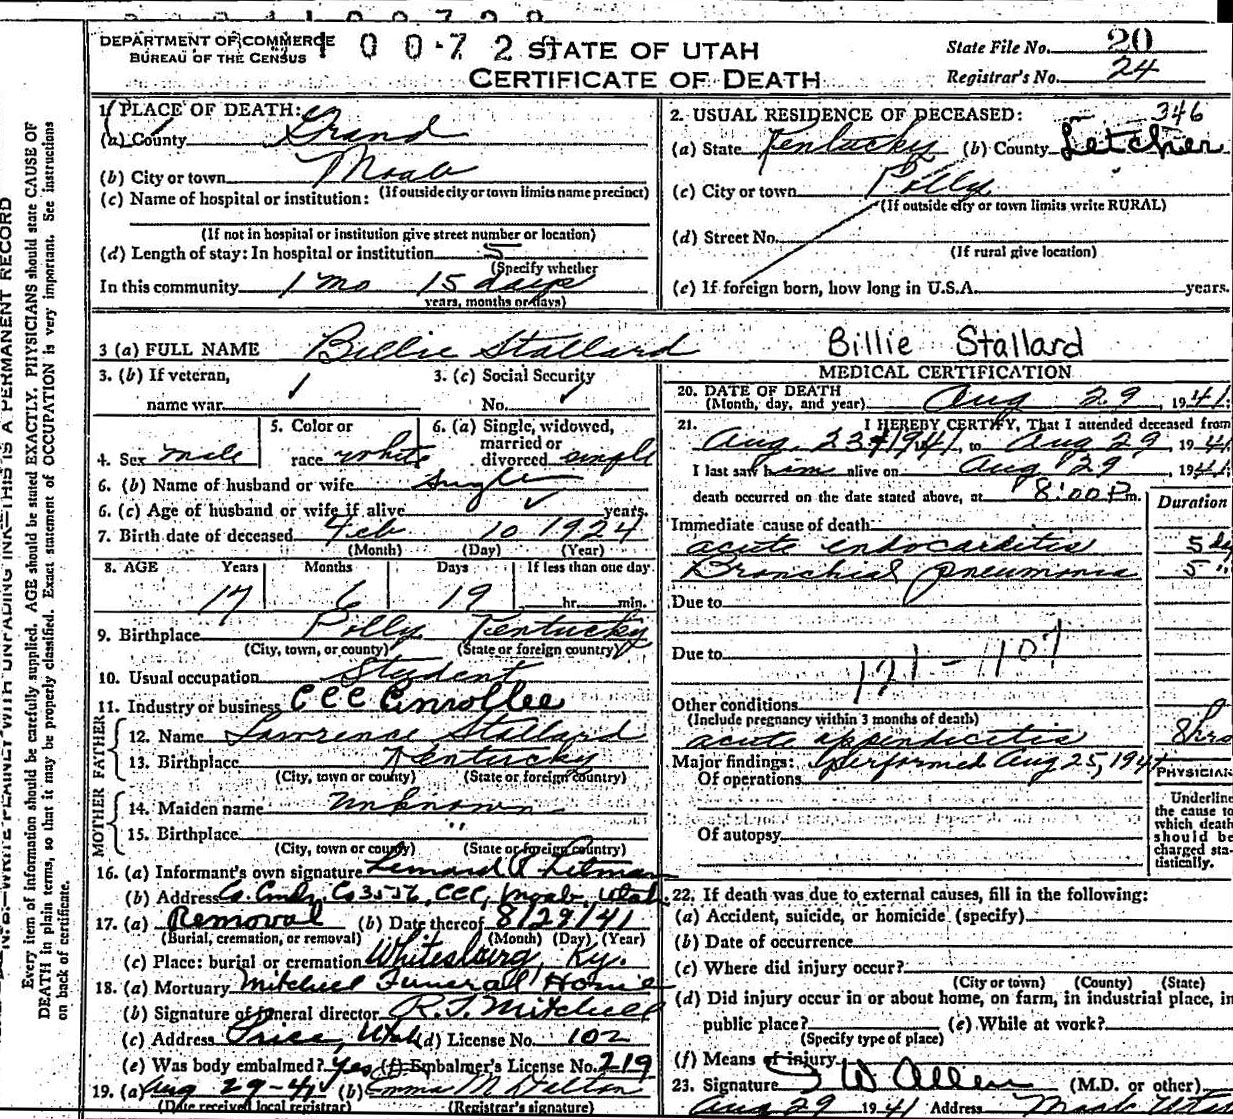 DEPARTMENT OF COMMERCE
BUREAU OF THE CENSUS
100-720
STATE OF UTAH
CERTIFICATE OF DEATH
State File No. 20
Registrar's No. 24
1. PLACE OF DEATH:
(a) County Grand
(b) City or town Moab
(If outside city or town limits name precinct)
(c) Name of hospital or institution:
(If not in hospital or institution give street number or location)
(d) Length of stay: In hospital or institution 5
(Specify whether
In this community 1 mo 15 days
years, months or days)
2. USUAL RESIDENCE OF DECEASED: 346
(a) State Kentucky (b) County Letcher
(c) City or town Polly
(If outside city or town limits write RURAL)
(d) Street No.
(If rural give location)
(e) If foreign born, how long in U.S.A. years.
3 (a) FULL NAME Billie Stallard
Billie Stallard
3. (b) If veteran, name war
3. (c) Social Security No.
4. Sex male
5. Color or race white
6. (a) Single, widowed, married or divorced single
6. (b) Name of husband or wife Single
6. (c) Age of husband or wife if alive years.
7. Birth date of deceased Feb 10 1924
(Month) (Day) (Year)
8. AGE Years Months Days If less than one day
17 6 19 hr. min.
9. Birthplace Polly Kentucky
(City, town, or county) (State or foreign country)
10. Usual occupation Student
11. Industry or business CCC Enrollee
FATHER
12. Name Lawrence Stallard
13. Birthplace Kentucky
(City, town or county) (State or foreign country)
MOTHER
14. Maiden name Unknown
15. Birthplace "
(City, town or county) (State or foreign country)
16. (a) Informant's own signature
(b) Address Co. Cmdr, Co 3556, CCC, Moab, Utah
17. (a) Removal (b) Date thereof 8/29/41
(Burial, cremation, or removal) (Month) (Day) (Year)
(c) Place: burial or cremation Whitesburg, Ky.
18. (a) Mortuary Mitchell Funeral Home
(b) Signature of funeral director R.J. Mitchell
(c) Address Price, Utah (d) License No. 102
(e) Was body embalmed? Yes (f) Embalmer's License No. 219
19. (a) Aug 29-41 (b) Emma M Dalton
(Date received local registrar) (Registrar's signature)
MEDICAL CERTIFICATION
20. DATE OF DEATH
(Month, day, and year) Aug 29, 1941.
21. I HEREBY CERTIFY, That I attended deceased from
Aug 23 1941, to Aug 29 1941
I last saw him alive on Aug 29, 1941
death occurred on the date stated above, at 8:00 P m.
Duration
Immediate cause of death
acute endocarditis 5 da
Bronchial pneumonia 5 "
Due to
Due to
121 - 107
Other conditions
(Include pregnancy within 3 months of death)
acute appendicitis 8 hrs
Major findings: performed Aug 25, 1941
Of operations
Of autopsy
PHYSICIAN
Underline
the cause to
which death
should be
charged sta-
tistically.
22. If death was due to external causes, fill in the following:
(a) Accident, suicide, or homicide (specify)
(b) Date of occurrence
(c) Where did injury occur?
(City or town) (County) (State)
(d) Did injury occur in or about home, on farm, in industrial place, in
public place? (e) While at work?
(Specify type of place)
(f) Means of injury
23. Signature I W Allen (M.D. or other)
Aug 29 1941 Address Moab Utah
N. B.—WRITE PLAINLY WITH UNFADING INK—THIS IS A PERMANENT RECORD
Every item of information should be carefully supplied. AGE should be stated EXACTLY. PHYSICIANS should state CAUSE OF
DEATH in plain terms, so that it may be properly classified. Exact statement of OCCUPATION is very important. See instructions
on back of certificate.